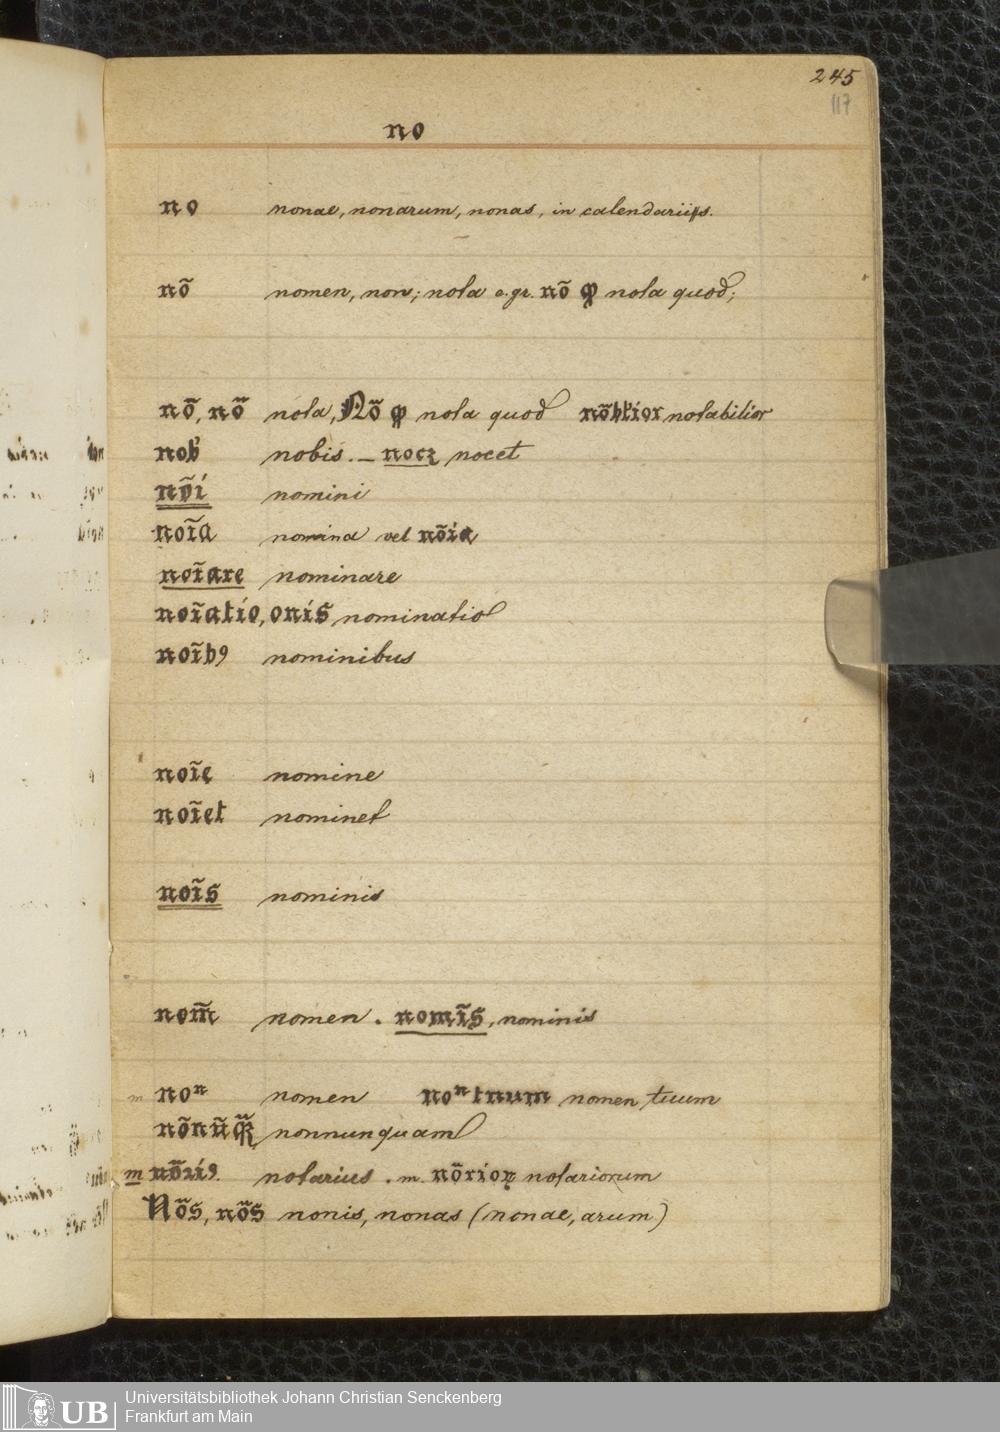 245
117
no
no nonae, nonarum, nonas, in calendariis.
nõ nomen, non; nota e.gr. nõ ꝙ nota quod;
nõ, nõ nota, Nõ ꝙ nota quod nõblior notabilior
nob' nobis. – nocꝫ nocet
nõi nomini
noĩa nomina vel nõia
noĩare nominare
noĩatio, onis nominatio
noĩbꝯ nominibus
noĩe nomine
noĩet nominet
noĩs nominis
nom̃ nomen. nomĩs, nominis
m noⁿ nomen noⁿ tuum nomen tuum
nõnũq̃ nonnunquam
m nõriꝯ. notarius. m. nõrioꝝ notariorum
Nõs, nõs nonis, nonas (nonae, arum)
UB Universitätsbibliothek Johann Christian Senckenberg
Frankfurt am Main